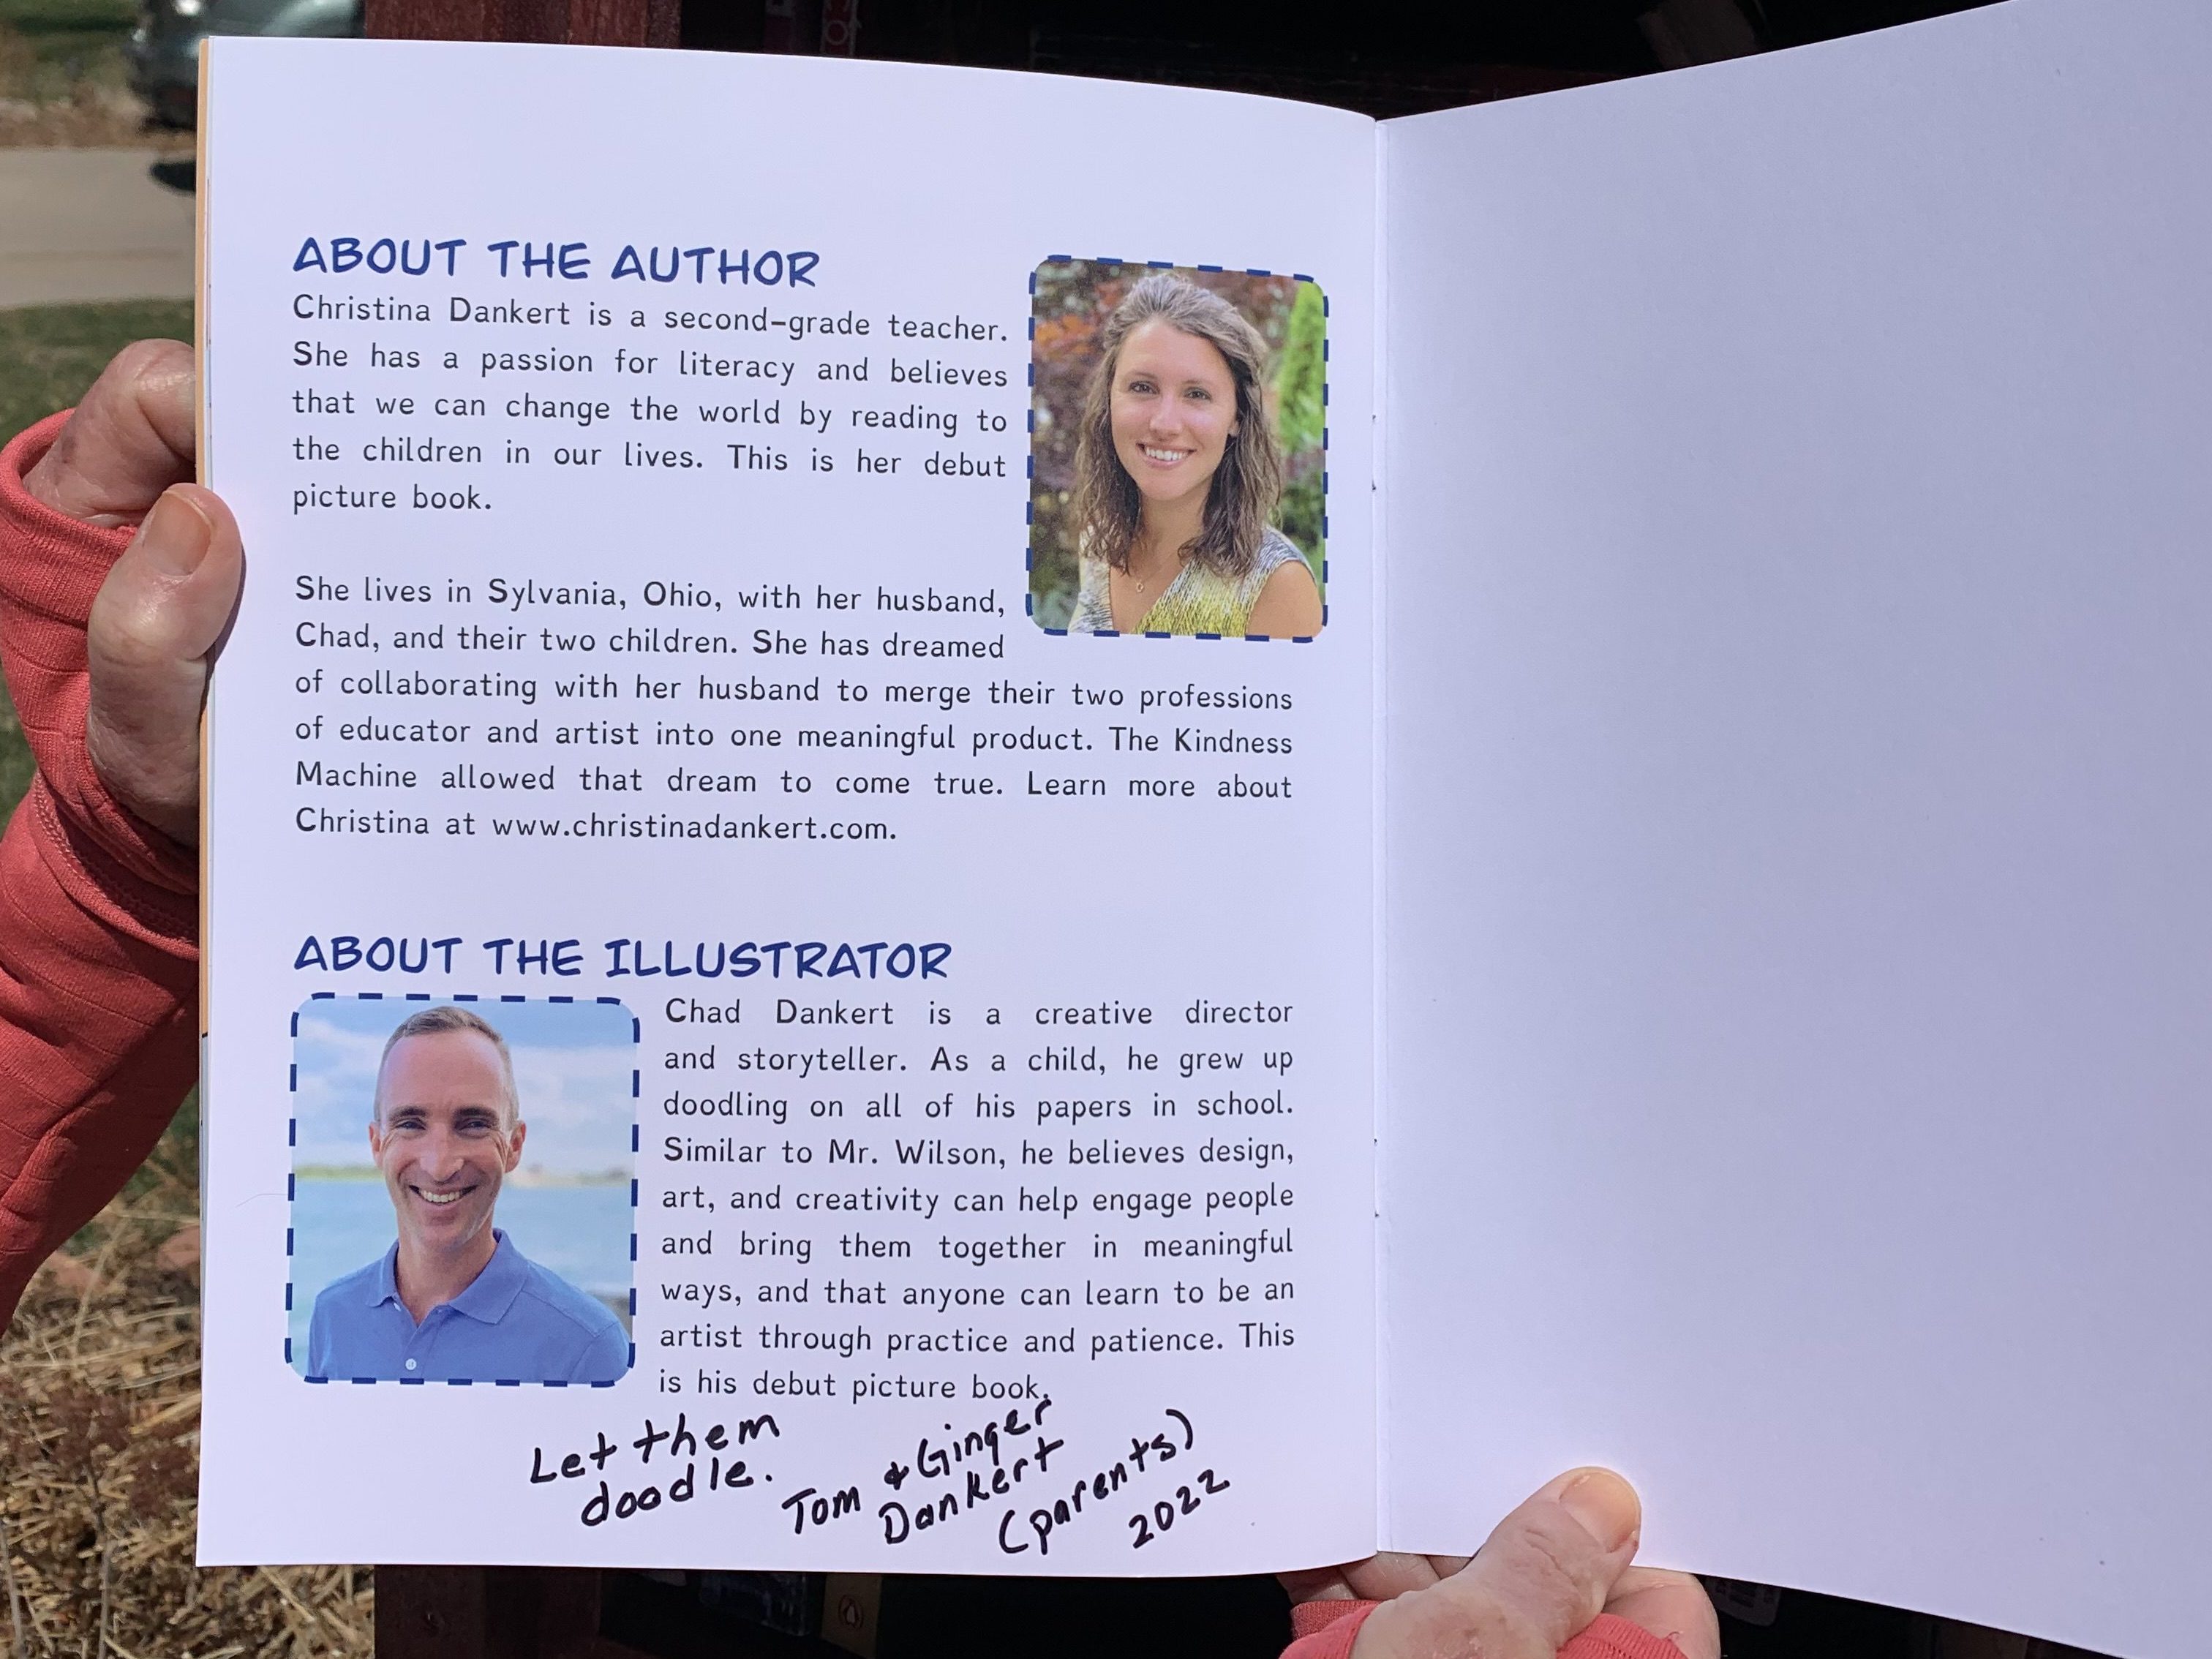 ABOUT THE AUTHOR
Christina Dankert is a second-grade teacher.
She has a passion for literacy and believes
that we can change the world by reading to
the children in our lives. This is her debut
picture book.
She lives in Sylvania, Ohio, with her husband,
Chad, and their two children. She has dreamed
of collaborating with her husband to merge their two professions
of educator and artist into one meaningful product. The Kindness
Machine allowed that dream to come true. Learn more about
Christina at www.christinadankert.com.
ABOUT THE ILLUSTRATOR
Chad Dankert is a creative director
and storyteller. As a child, he grew up
doodling on all of his papers in school.
Similar to Mr. Wilson, he believes design,
art, and creativity can help engage people
and bring them together in meaningful
ways, and that anyone can learn to be an
artist through practice and patience. This
is his debut picture book.
Let them
doodle.
Tom & Ginger
Dankert
(parents)
2022